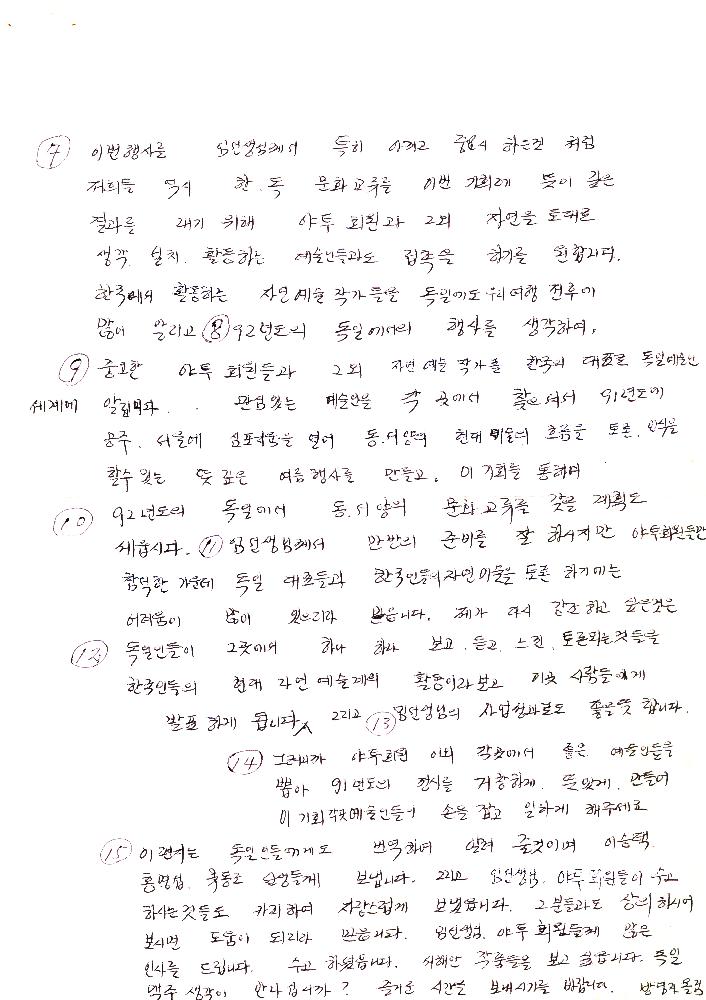 ⑦ 이번 행사를 임선생님께서 특히 아끼고 중요시 하는것 처럼
저희들 역시 한.독 문화교류를 이번 기회에 뜻이 깊은
결과를 내기 위해 야투 회원과 그외 자연을 토대로
생각. 설치. 활동하는 예술인들과도 접촉을 하기를 원합니다.
한국에서 활동하는 자연예술작가들을 독일에도 우리여행 전후에
많이 알리고 ⑧ 92년도의 독일에서의 행사를 생각하여,
⑨ 중요한 야투 회원들과 그외 자연 예술 작가를 한국의 대표로 독일예술인
세계에 알립시다. 관심있는 예술인을 각 곳에서 찾으셔서 91년도에
공주. 서울에 심포지움을 열어 동.서양의 현대 미술의 흐름을 토론. 인식을
할수 있는 뜻 깊은 여름행사를 만들고, 이 기회를 통하여
⑩ 92년도의 독일에서 동.서양의 문화교류를 갖을 계획도
세웁시다. ⑪ 임선생님께서 만반의 준비를 잘 하시지만 야투회원들만
참석한 가운데 독일 대표들과 한국인들의 자연미술을 토론 하기에는
어려움이 많이 있으리라 믿습니다. 제가 다시 강조하고 싶은것은
⑫ 독일인들이 그곳에서 하나 하나 보고. 듣고. 느낀. 토론되는것들을
한국인들의 현대 자연예술계의 활동이라보고 이곳 사람들에게
발표 하게 됩니다. 그리고 ⑬ 임선생님의 사업성과보도 좋을듯 합니다.
⑭ 그러니까 야투회원 이외 각곳에서 좋은 예술인들을
뽑아 91년도의 전시를 거창하게. 뜻있게. 만들어
이 기회 각곳예술인들이 손을 잡고 일하게 해주세요
⑮ 이 편지는 독일인들에게도 번역하여 알려 줄것이며 이승택.
홍명섭. 선생들께 보냅니다. 그리고 임선생님. 야투회원들이 수고
하시는것들도 카피하여 자랑스럽게 보냈습니다. 그분들과도 상의하시어
보시면 도움이 되리라 믿습니다. 임선생님. 야투회원들께 많은
인사를 드립니다. 수고 하셨습니다. 새해안 작품들을 보고 싶습니다. 독일
맥주 생각이 안나십니까? 즐거운 시간을 보내시기를 바랍니다. 올림